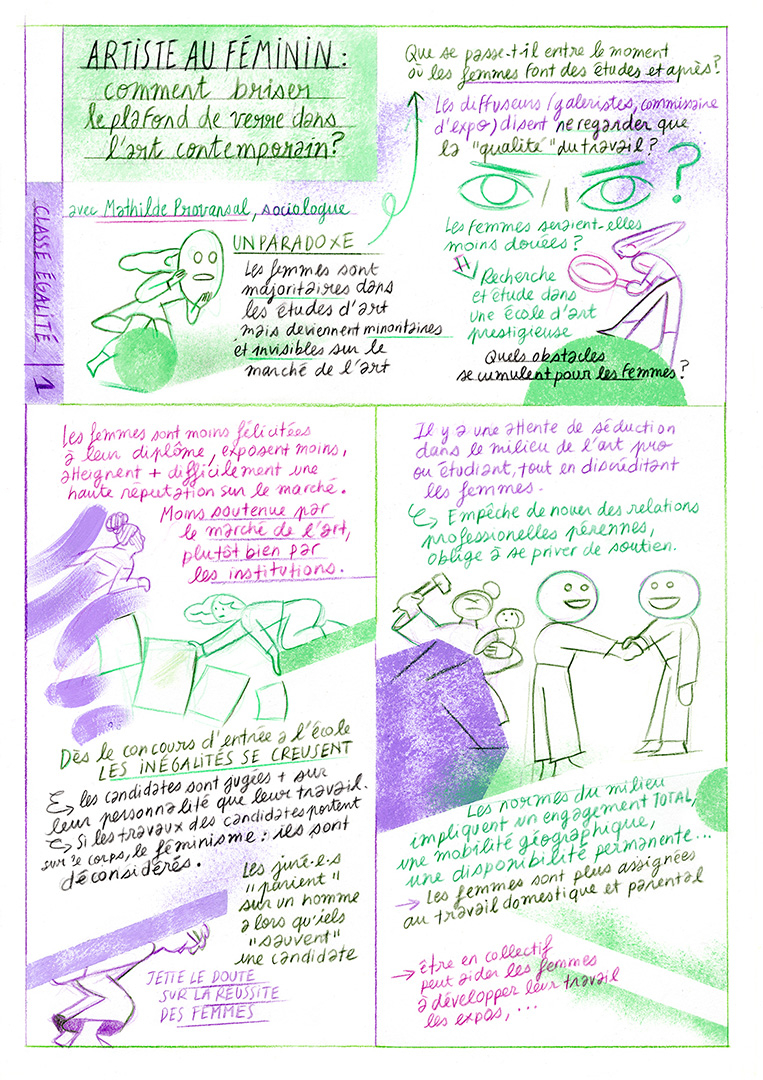 ARTISTE AU FÉMININ :
comment briser
le plafond de verre dans
l'art contemporain ?
avec Mathilde Provansal, sociologue
CLASSE ÉGALITÉ
1
UN PARADOXE
Les femmes sont
majoritaires dans
les études d'art
mais deviennent minoritaires
et invisibles sur le
marché de l'art
Que se passe-t-il entre le moment
où les femmes font des études et après ?
Les diffuseurs (galeristes, commissaire
d'expo) disent ne regarder que
la "qualité" du travail ?
?
Les femmes seraient-elles
moins douées ?
Recherche
et étude dans
une école d'art
prestigieuse
Quels obstacles
se cumulent pour les femmes ?
Les femmes sont moins félicitées
à leur diplôme, exposent moins,
atteignent + difficilement une
haute réputation sur le marché.
Moins soutenue par
le marché de l'art,
plutôt bien par
les institutions.
Dès le concours d'entrée à l'école
LES INÉGALITÉS SE CREUSENT
les candidates sont jugées + sur
leur personnalité que leur travail.
Si les travaux des candidates portent
sur le corps, le féminisme : ils sont
déconsidérés.
Les juré·e·s
"parient"
sur un homme
alors qu'iels
"sauvent"
une candidate
JETTE LE DOUTE
SUR LA RÉUSSITE
DES FEMMES
Il y a une attente de séduction
dans le milieu de l'art pro
ou étudiant, tout en discréditant
les femmes.
Empêche de nouer des relations
professionelles pérennes,
oblige à se priver de soutien.
Les normes du milieu
impliquent un engagement TOTAL,
une mobilité géographique,
une disponibilité permanente...
→ Les femmes sont plus assignées
au travail domestique et parental
→ être en collectif
peut aider les femmes
à développer leur travail
les expos, ...